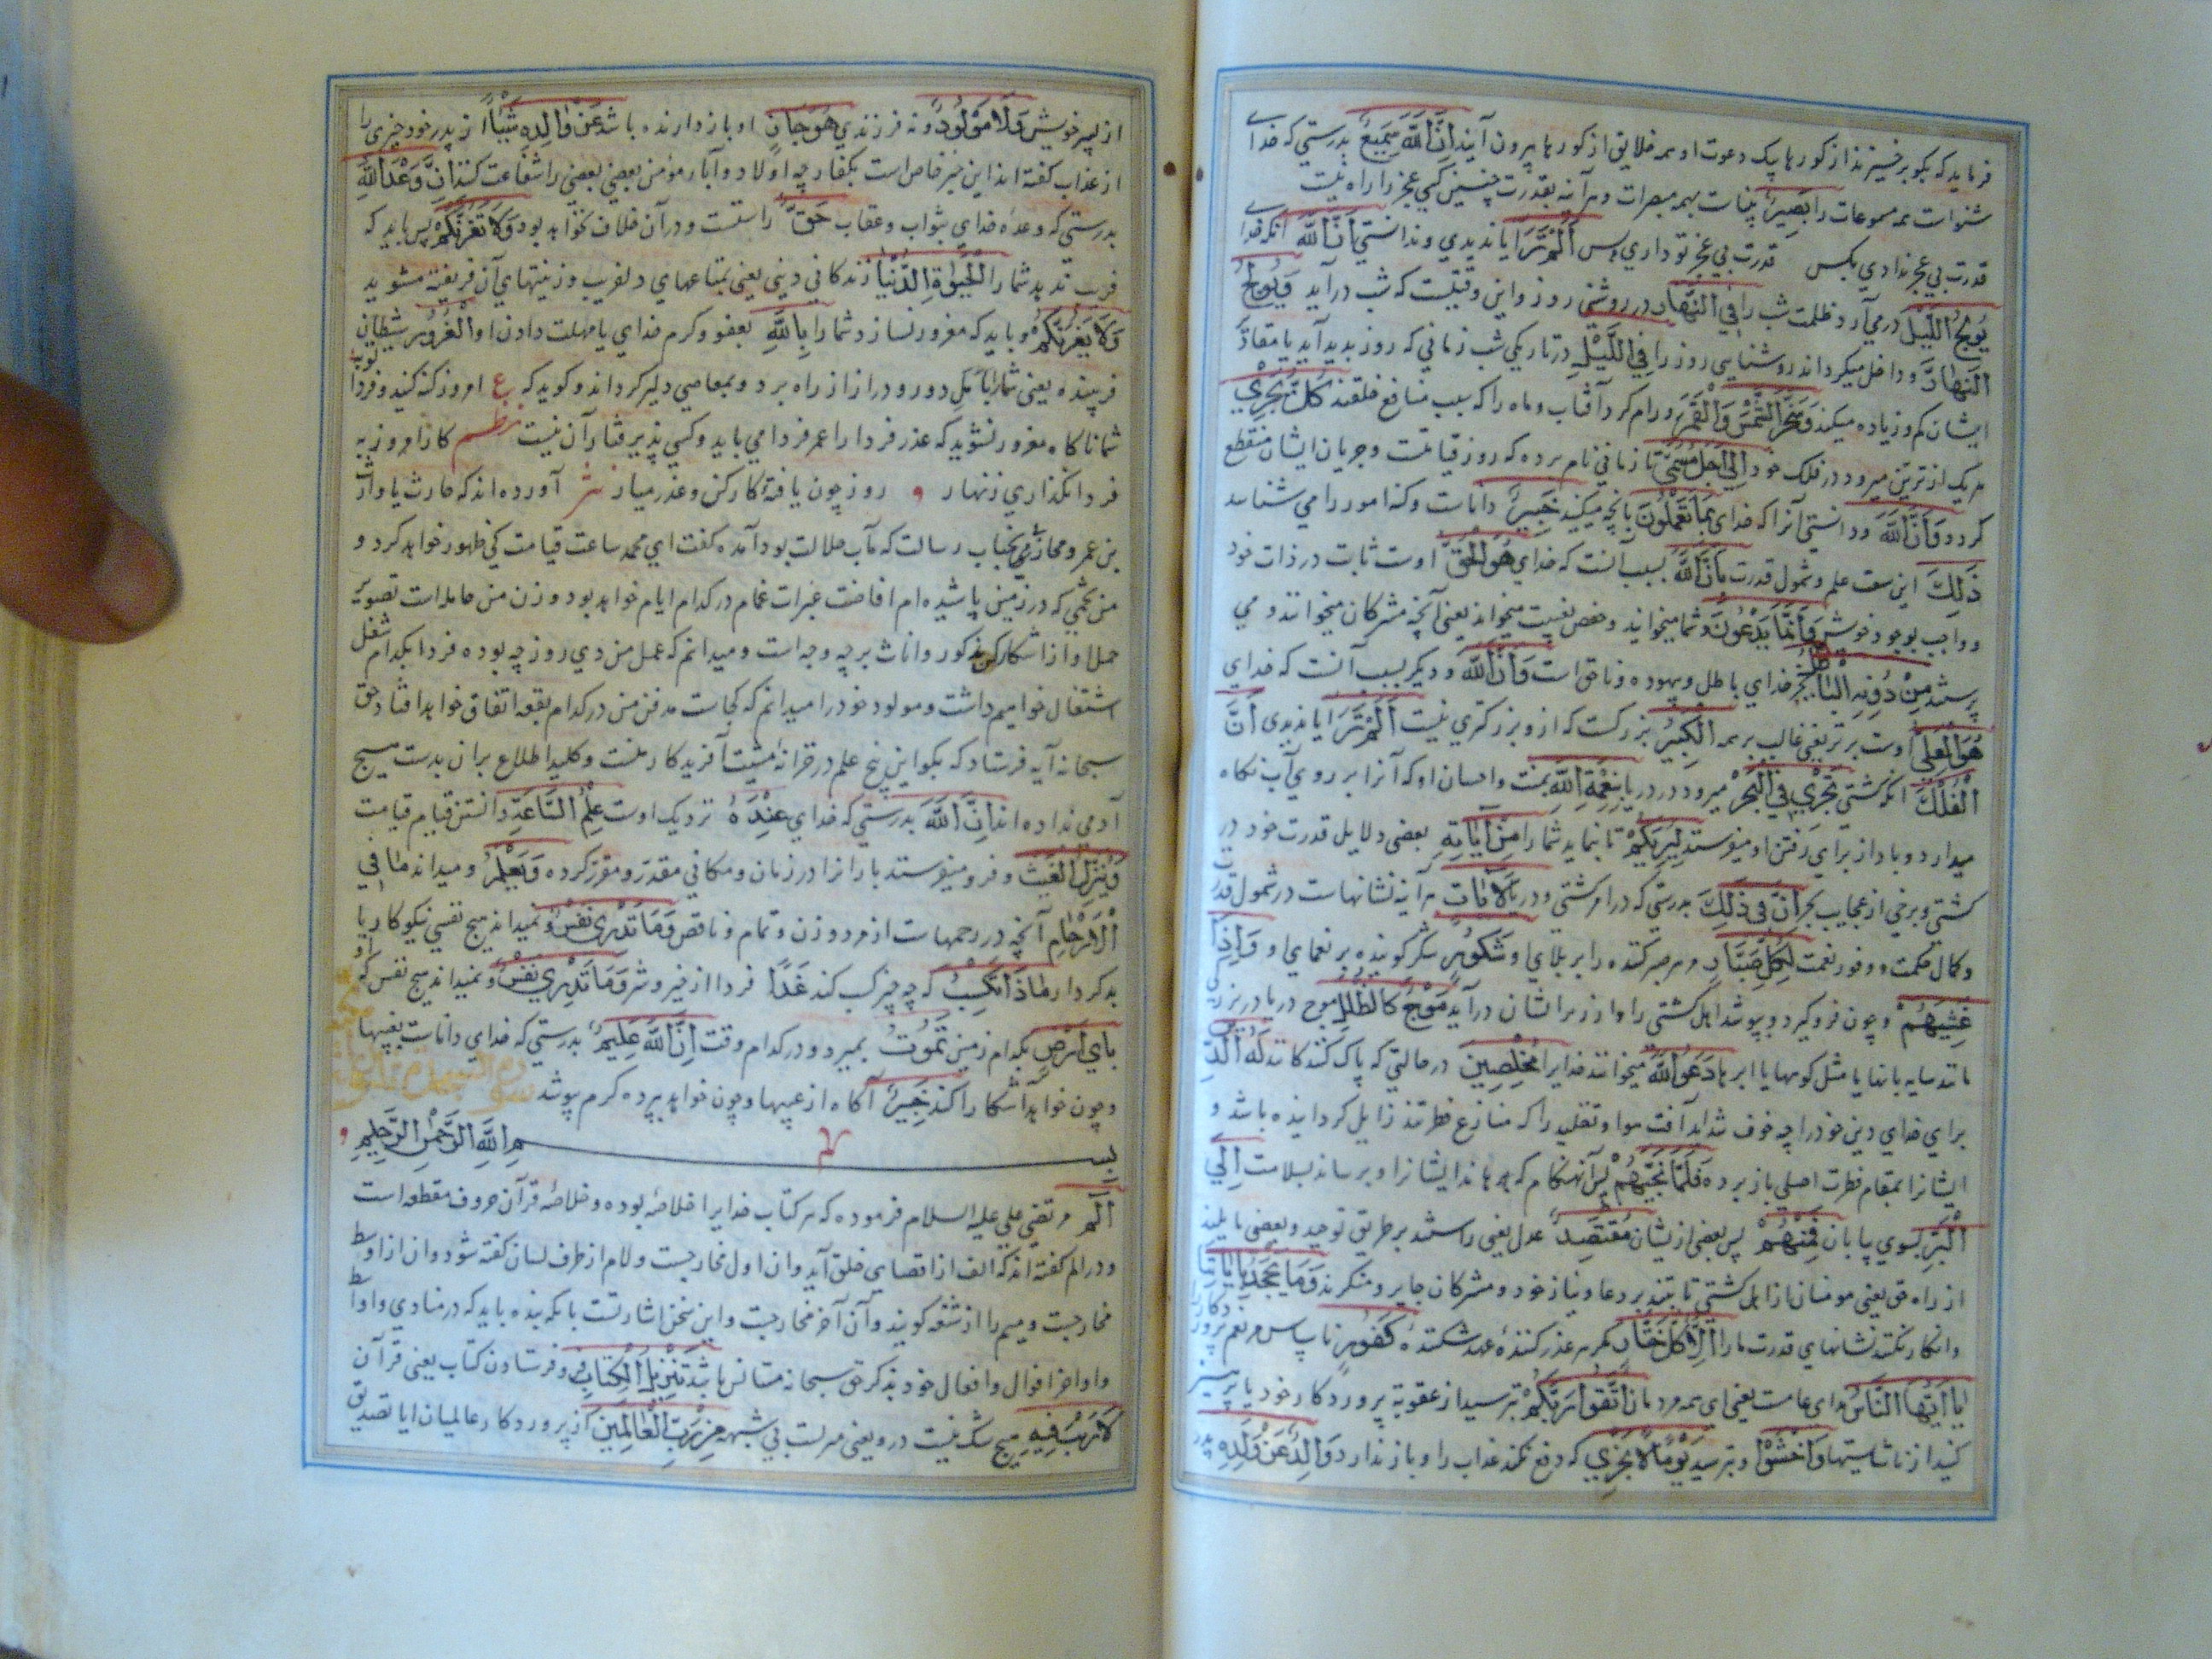 فرماید که بکو برخیزند از کورها بیک دعوت او همه خلایق از کورها بیرون آیند اِنَّ اللّٰهَ سَمِیعٌ بدرستی که خدای
شنواست همه مسموعات را بَصِیرٌ بیناست بهمه مبصرات و هرآینه بقدرت چنین کسی عجز را راه نیست
قدرت بی عجز ندادی بکس قدرت بی عجز تو داری و بس اَلَمْ تَرَ ایا ندیدی و ندانستی اَنَّ اللّٰهَ آنکه خدای
یُولِجُ اللَّیْلَ درمی آرد ظلمت شب را فِی النَّهَارِ در روشنی روز و این وقتیست که شب درآید وَیُولِجُ
النَّهَارَ و داخل میکرداند روشنایی روز را فِی اللَّیْلِ در تاریکی شب زمانی که روز بدید آید یا مقادیر
ایشان کم و زیاده میکند وَسَخَّرَ الشَّمْسَ وَالْقَمَرَ و رام کرد آفتاب و ماه را که سبب منافع خلقند کُلٌّ یَجْرِی
هر یک از نیرین میرود در فلک خود اِلٰی اَجَلٍ مُسَمًّی تا زمانی نام برده که روز قیامتست و جریان ایشان منقطع
کردد وَاَنَّ اللّٰهَ و دانستی آنرا که خدای بِمَا تَعْمَلُونَ بآنچه میکنید خَبِیرٌ داناست وکنه امور را می شناسد
ذٰلِکَ این سعت علم و شمول قدرت بِاَنَّ اللّٰهَ بسبب آنست که خدای هُوَ الْحَقُّ اوست ثابت در ذات خود
و واجب بوجود خویش وَاَنَّمَا یَدْعُونَ و شما میخوانید و حفص بغیبت میخواند یعنی آنچه مشرکان میخوانند و می
پرستند مِنْ دُونِهِ الْبَاطِلُ بجز خدای باطل و بیهوده و ناحق است وَاَنَّ اللّٰهَ و دیکر بسبب آنست که خدای
هُوَ الْعَلِیُّ اوست برتر یعنی غالب برهمه الْکَبِیرُ بزرکست که ازو بزرکتری نیست اَلَمْ تَرَ ایا ندیدی اَنَّ
الْفُلْکَ آنکه کشتی تَجْرِی فِی الْبَحْرِ میرود در دریا بِنِعْمَةِ اللّٰهِ بمنت و احسان او که آنرا بر روی آب نکاه
میدارد و باد از برای رفتن او میفرستد لِیُرِیَکُمْ تا بنماید شما را مِنْ آیَاتِهِ بعضی دلایل قدرت خود در
کشتی و برخی از عجایب بحر اِنَّ فِی ذٰلِکَ بدرستی که در امر کشتی و دریا لَآیَاتٍ هرآینه نشانهاست در شمول قدرت
و کمال حکمت و وفور نعمت لِکُلِّ صَبَّارٍ مر هر صبر کننده را بر بلای او شَکُورٍ شکر کوینده بر نعمای او وَاِذَا
غَشِیَهُمْ و چون فرو کیرد و بپوشد اهل کشتی را و از زبر ایشان درآید مَوْجٌ کَالظُّلَلِ موج دریا در بزرکی
مانند سایه بانها یا مثل کوهها یا ابرها دَعَوُا اللّٰهَ میخوانند خدایرا مُخْلِصِینَ در حالتی که پاک کنندکانند لَهُ الدِّینَ
برای خدای دین خود را چه خوف شداید آفت هوا و تقلید را که منازع فطرتند زایل کردانیده باشد و
ایشانرا بمقام فطرت اصلی باز برده فَلَمَّا نَجّٰیهُمْ پس آنهنکام که برهاند ایشانرا و برساند بسلامت اِلَی
الْبَرِّ بسوی بیابان فَمِنْهُمْ پس بعضی از یشان مُقْتَصِدٌ عدول یعنی راستند بر طریق توحید و بعضی مایلند
از راه حق یعنی مومنان از اهل کشتی ثابتند بر دعا و نیاز خود و مشرکان جایر و منکرند وَمَا یَجْحَدُ بِآیَاتِنَا
و انکار نکنند نشانهای قدرت ما را اِلَّا کُلُّ خَتَّارٍ مکر هر غدر کنندهٔ عهد شکنندهٔ کَفُورٍ ناسپاس مر نعم پروردکار را
یَا اَیُّهَا النَّاسُ ندای عامست یعنی ای همه مردمان اتَّقُوا رَبَّکُمْ بترسید از عقوبة پروردکار خود یا پرهیز
کنید از ناشایستیها وَاخْشَوْا و بترسید یَوْمًا لَا یَجْزِی که دفع نکند عذاب را و باز ندارد وَالِدٌ عَنْ وَلَدِهِ پدر
از پسر خویش وَلَا مَوْلُودٌ و نه فرزندی هُوَ جَازٍ او باز دارنده باشد عَنْ وَالِدِهِ شَیْئًا از پدر خود چیزی را
از عذاب کفته اند این خبر خاص است بکفار چه اولاد و آبار مؤمن بعضی بعضی را شفاعت کنند اِنَّ وَعْدَ اللّٰهِ
بدرستی که وعدهٔ خدای بثواب و عقاب حَقٌّ راستست و در آن خلاف نخواهد بود وَلَا تَغُرَّنَّکُمْ پس باید که
فریب ندهد شما را الْحَیٰوةُ الدُّنْیَا زندکانی دنیی یعنی بمتاعهای دلفریب و زینتهای آن فریفته مشوید
وَلَا یَغُرَّنَّکُمْ و باید که مغرور نسازد شما را بِاللّٰهِ بعفو و کرم خدای یا مهلت دادن او الْغَرُورُ شیطان
فریبنده یعنی شما را بامل دور و دراز از راه برد و بمعاصی دلیر کرداند و کوید که ع امروز کنه کنید و فردا توبه
شما ناکاه مغرور نشوید که عذر فردا را عمر فردا می باید و کسی پذیرفتار آن نیست نظم کار امروز به
فردا نکذاری زنهار و روز چون یافتهٔ کار کن و عذر میار نثر آورده اند که حارث یا وارث
بن عمرو محاربی بجناب رسالت که مآب جلالت بود آمده کفت ای محمد ساعت قیامت کی ظهور خواهد کرد و
من تخمی که در زمین پاشیده ام افاضت غبرات غمام در کدام ایام خواهد بود و زن من حامله است تصویر
حمل او از اشکال ذکور و اناث بر چه وجه است و میدانم که عمل من دی روز چه بوده فردا بکدام شغل
اشتغال خواهیم داشت و مولود خود را میدانم که کجاست مدفن من در کدام بقعه اتفاق خواهد افتاد حق
سبحانه آیه فرستاد که بکو این پنج علم در خزانهٔ مشیت آفریدکار منست و کلید اطلاع بران بدست هیچ
آدمی نداده اند اِنَّ اللّٰهَ بدرستی که خدای عِنْدَهُ نزدیک اوست عِلْمُ السَّاعَةِ دانستن قیام قیامت
وَیُنَزِّلُ الْغَیْثَ و فرو میفرستد بارانرا در زمان و مکانی مقدر و مقرر کرده وَیَعْلَمُ و میداند مَا فِی
الْاَرْحَامِ آنچه در رحمهاست از مرد و زن و تمام و ناقص وَمَا تَدْرِی نَفْسٌ و نمیداند هیچ نفسی نیکوکار یا
بدکردار مَاذَا تَکْسِبُ که چه چیز کسب کند غَدًا فردا از خیر و شر وَمَا تَدْرِی نَفْسٌ و نمیداند هیچ نفس که او
بِاَیِّ اَرْضٍ بکدام زمین تَمُوتُ بمیرد و در کدام وقت اِنَّ اللّٰهَ عَلِیمٌ بدرستی که خدای داناست بغیبها
و چون خواهد آشکارا کند خَبِیرٌ آکاه از عیبها و چون خواهد بپرده کرم بپوشد
بِسْمِ اللّٰهِ الرَّحْمٰنِ الرَّحِیمِ
الٓمٓ مرتضی علی علیه السلام فرموده که هر کتاب خدایرا خلاصهٔ بوده و خلاصهٔ قرآن حروف مقطعه است
و در الم کفته اند که الف از اقصای حلق آید و آن اول مخارجست و لام از طرف لسان کفته شود و آن از اوسط
مخارجست و میم را از شفه کویند و آن آخر مخارجست و این سخن اشارتست بآنکه بنده باید که در مبادی و اواسط
و اواخر اقوال و افعال خود بذکر حق سبحانه مستانس باشد تَنْزِیلُ الْکِتَابِ فرو فرستادن کتاب یعنی قرآن
لَا رَیْبَ فِیهِ هیچ شک نیست درو یعنی منزلست بی شبهه مِنْ رَبِّ الْعَالَمِینَ از پروردکار عالمیان ایا تصدیق